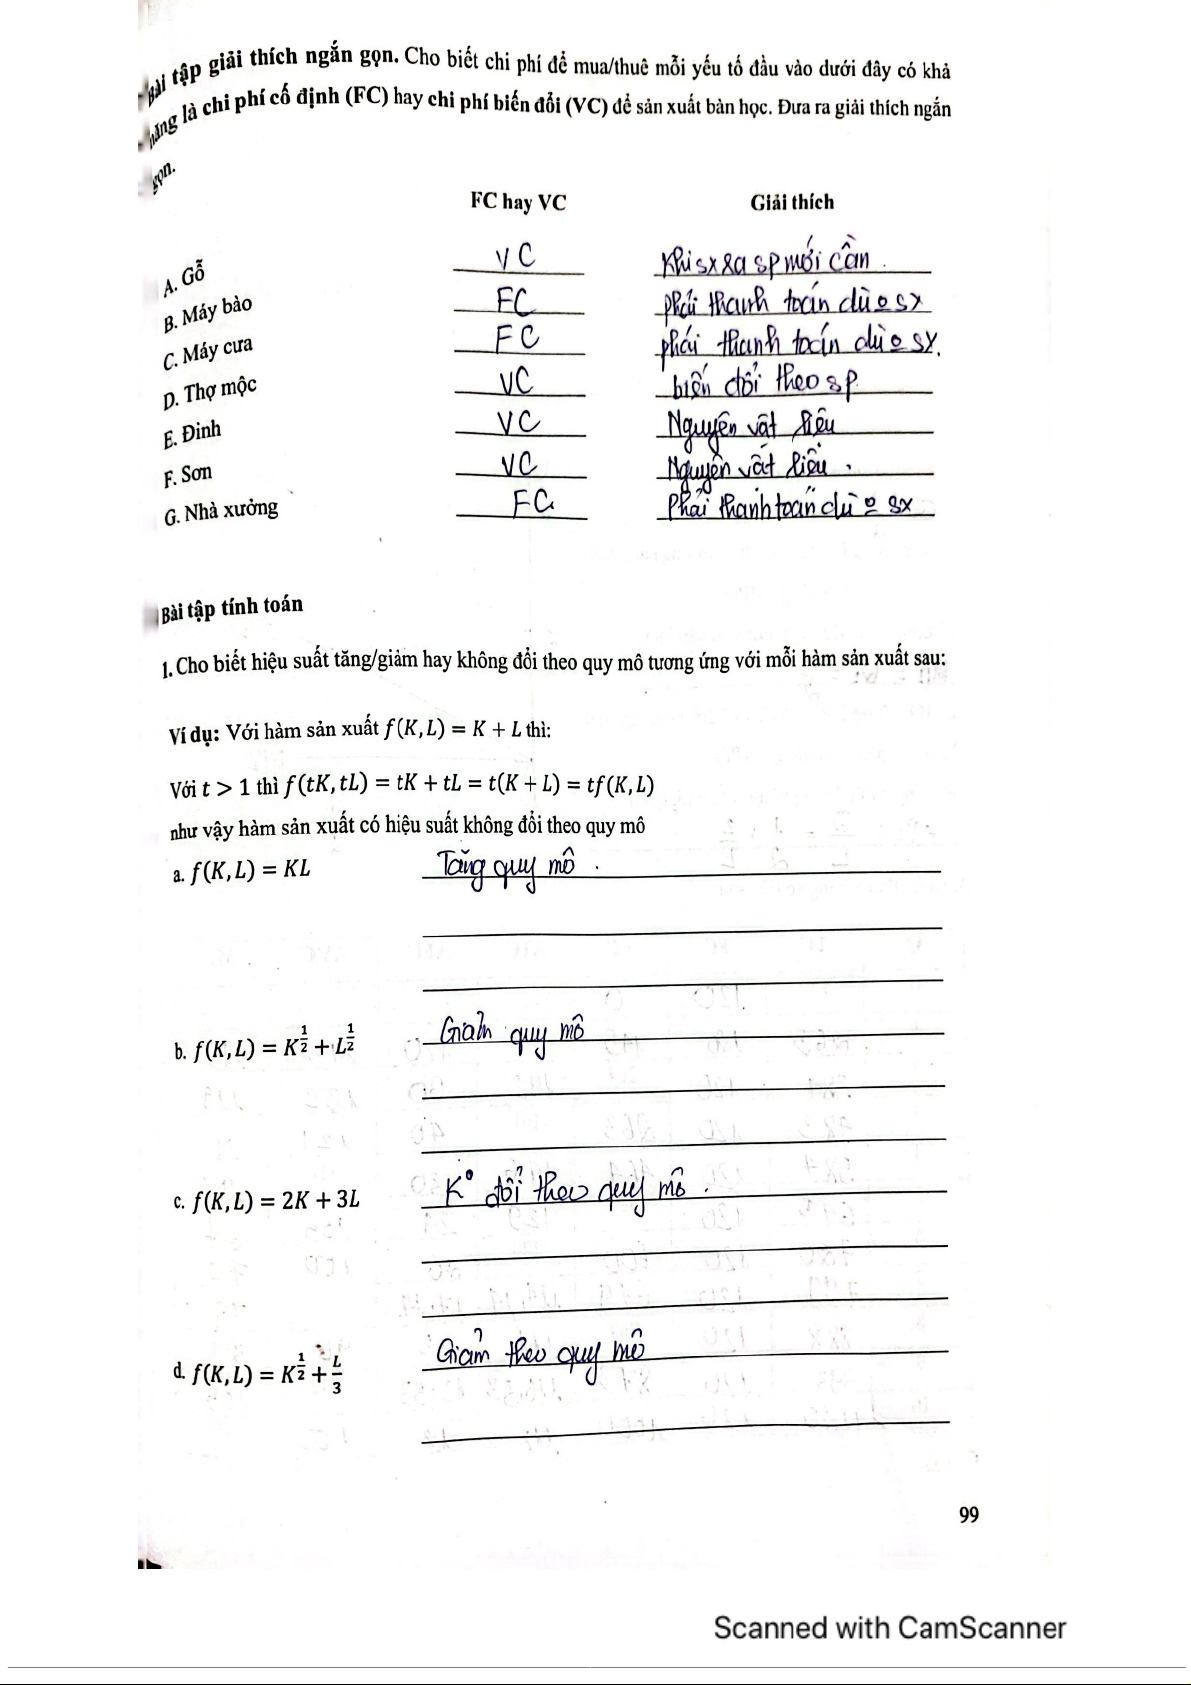 Bài tập giải thích ngắn gọn. Cho biết chi phí để mua/thuê mỗi yếu tố đầu vào dưới đây có khả
năng là chi phí cố định (FC) hay chi phí biến đổi (VC) để sản xuất bàn học. Đưa ra giải thích ngắn
gọn.
FC hay VC Giải thích
A. Gỗ VC Khi sx ra sp mới cần.
B. Máy bào FC phải thanh toán dù o sx
C. Máy cưa FC phải thanh toán dù o sx.
D. Thợ mộc VC biến đổi theo sp
E. Đinh VC Nguyên vật liệu
F. Sơn VC Nguyên vật liệu.
G. Nhà xưởng FC Phải thanh toán dù o sx
Bài tập tính toán
1. Cho biết hiệu suất tăng/giảm hay không đổi theo quy mô tương ứng với mỗi hàm sản xuất sau:
Ví dụ: Với hàm sản xuất f(K, L) = K + L thì:
Với t > 1 thì f(tK, tL) = tK + tL = t(K + L) = tf(K, L)
như vậy hàm sản xuất có hiệu suất không đổi theo quy mô
a. f(K, L) = KL Tăng quy mô.
b. f(K, L) = K^(1/2) + L^(1/2) Giảm quy mô
c. f(K, L) = 2K + 3L K° đổi theo quy mô.
d. f(K, L) = K^(1/2) + L/3 Giảm theo quy mô
99
Scanned with CamScanner